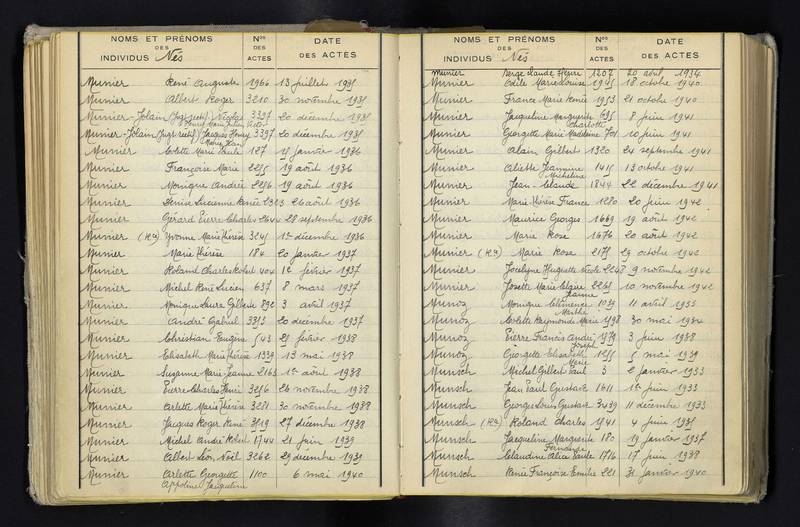 NOMS ET PRÉNOMS DES INDIVIDUS Nés
Nos DES ACTES
DATE DES ACTES
Munier René Auguste 1966 13 juillet 1935
Munier Albert Roger 3210 30 novembre 1935
Munier-Jolain (Jugt rectif) Nicolas 3397 20 décembre 1935
Henry Marie Julien Victor
Munier-Jolain (Jugt rectif) Jacques Henry 3397 20 décembre 1935
Marie Jean
Munier Colette Marie Paule 127 15 janvier 1936
Munier Françoise Marie 2255 19 août 1936
Munier Monique Andrée 2256 19 août 1936
Munier Lucienne Renée 2323 26 août 1936
Munier Gérard Pierre Charles 2644 28 septembre 1936
Munier Yvonne Marie Thérèse 3245 1er décembre 1936
Munier Marie Thérèse 184 20 janvier 1937
Munier Roland Charles Robert 404 12 février 1937
Munier Michel René Lucien 637 8 mars 1937
Munier Monique Laure Gilberte 892 3 avril 1937
Munier André Gabriel 3353 20 décembre 1937
Munier Christian Eugène 543 25 février 1938
Munier Elisabeth Marie Thérèse 1339 13 mai 1938
Munier Suzanne Marie Jeanne 2163 1er août 1938
Munier Pierre Charles Henri 3256 26 novembre 1938
Munier Arlette Marie Thérèse 3281 30 novembre 1938
Munier Jacques Roger René 3519 27 décembre 1938
Munier Michel André Robert 1744 21 juin 1939
Munier Albert Léon Noël 3262 29 décembre 1939
Munier Arlette Georgette 1100 6 mai 1940
Appoline Jacqueline
NOMS ET PRÉNOMS DES INDIVIDUS Nés
Nos DES ACTES
DATE DES ACTES
Munier Serge Claude Henri 1207 20 avril 1934
Munier Odile Marie Louise 1945 18 octobre 1940
Munier France Marie Renée 1953 21 octobre 1940
Munier Jacqueline Marguerite 695 8 juin 1941
Charlotte
Munier Georgette Marie Madeleine 701 10 juin 1941
Munier Alain Gilbert 1320 24 septembre 1941
Munier Aliette Jeannine 1415 13 octobre 1941
Micheline
Munier Jean-Claude 1844 22 décembre 1941
Munier Marie Thérèse France 1280 20 juin 1942
Munier Maurice Georges 1669 19 août 1942
Munier Marie Rose 1676 20 août 1942
Munier Marie Rose 2175 29 octobre 1942
Munier Jocelyne Huguette Nicole 2248 9 novembre 1942
Munier Josette Marie Claire 2265 10 novembre 1942
Jeanne
Munoz Monique Clémence 1039 11 avril 1933
Marthe
Munoz Colette Raymonde Marie 1598 30 mai 1934
Munoz Pierre Francis André 1539 3 juin 1938
Joseph
Munoz Georgette Elisabeth 1255 5 mai 1939
Marie
Munsch Michel Gilbert Paul 3 2 janvier 1933
Munsch Jean Paul Gustave 1611 1er juin 1933
Munsch Georges Louis Gustave 3439 11 décembre 1933
Munsch Roland Charles 1541 4 juin 1935
Munsch Jacqueline Marguerite 180 19 janvier 1937
Fernande
Munsch Claudine Alice Paule 1716 17 juin 1938
Munsch Renée Françoise Emilie 221 31 janvier 1940